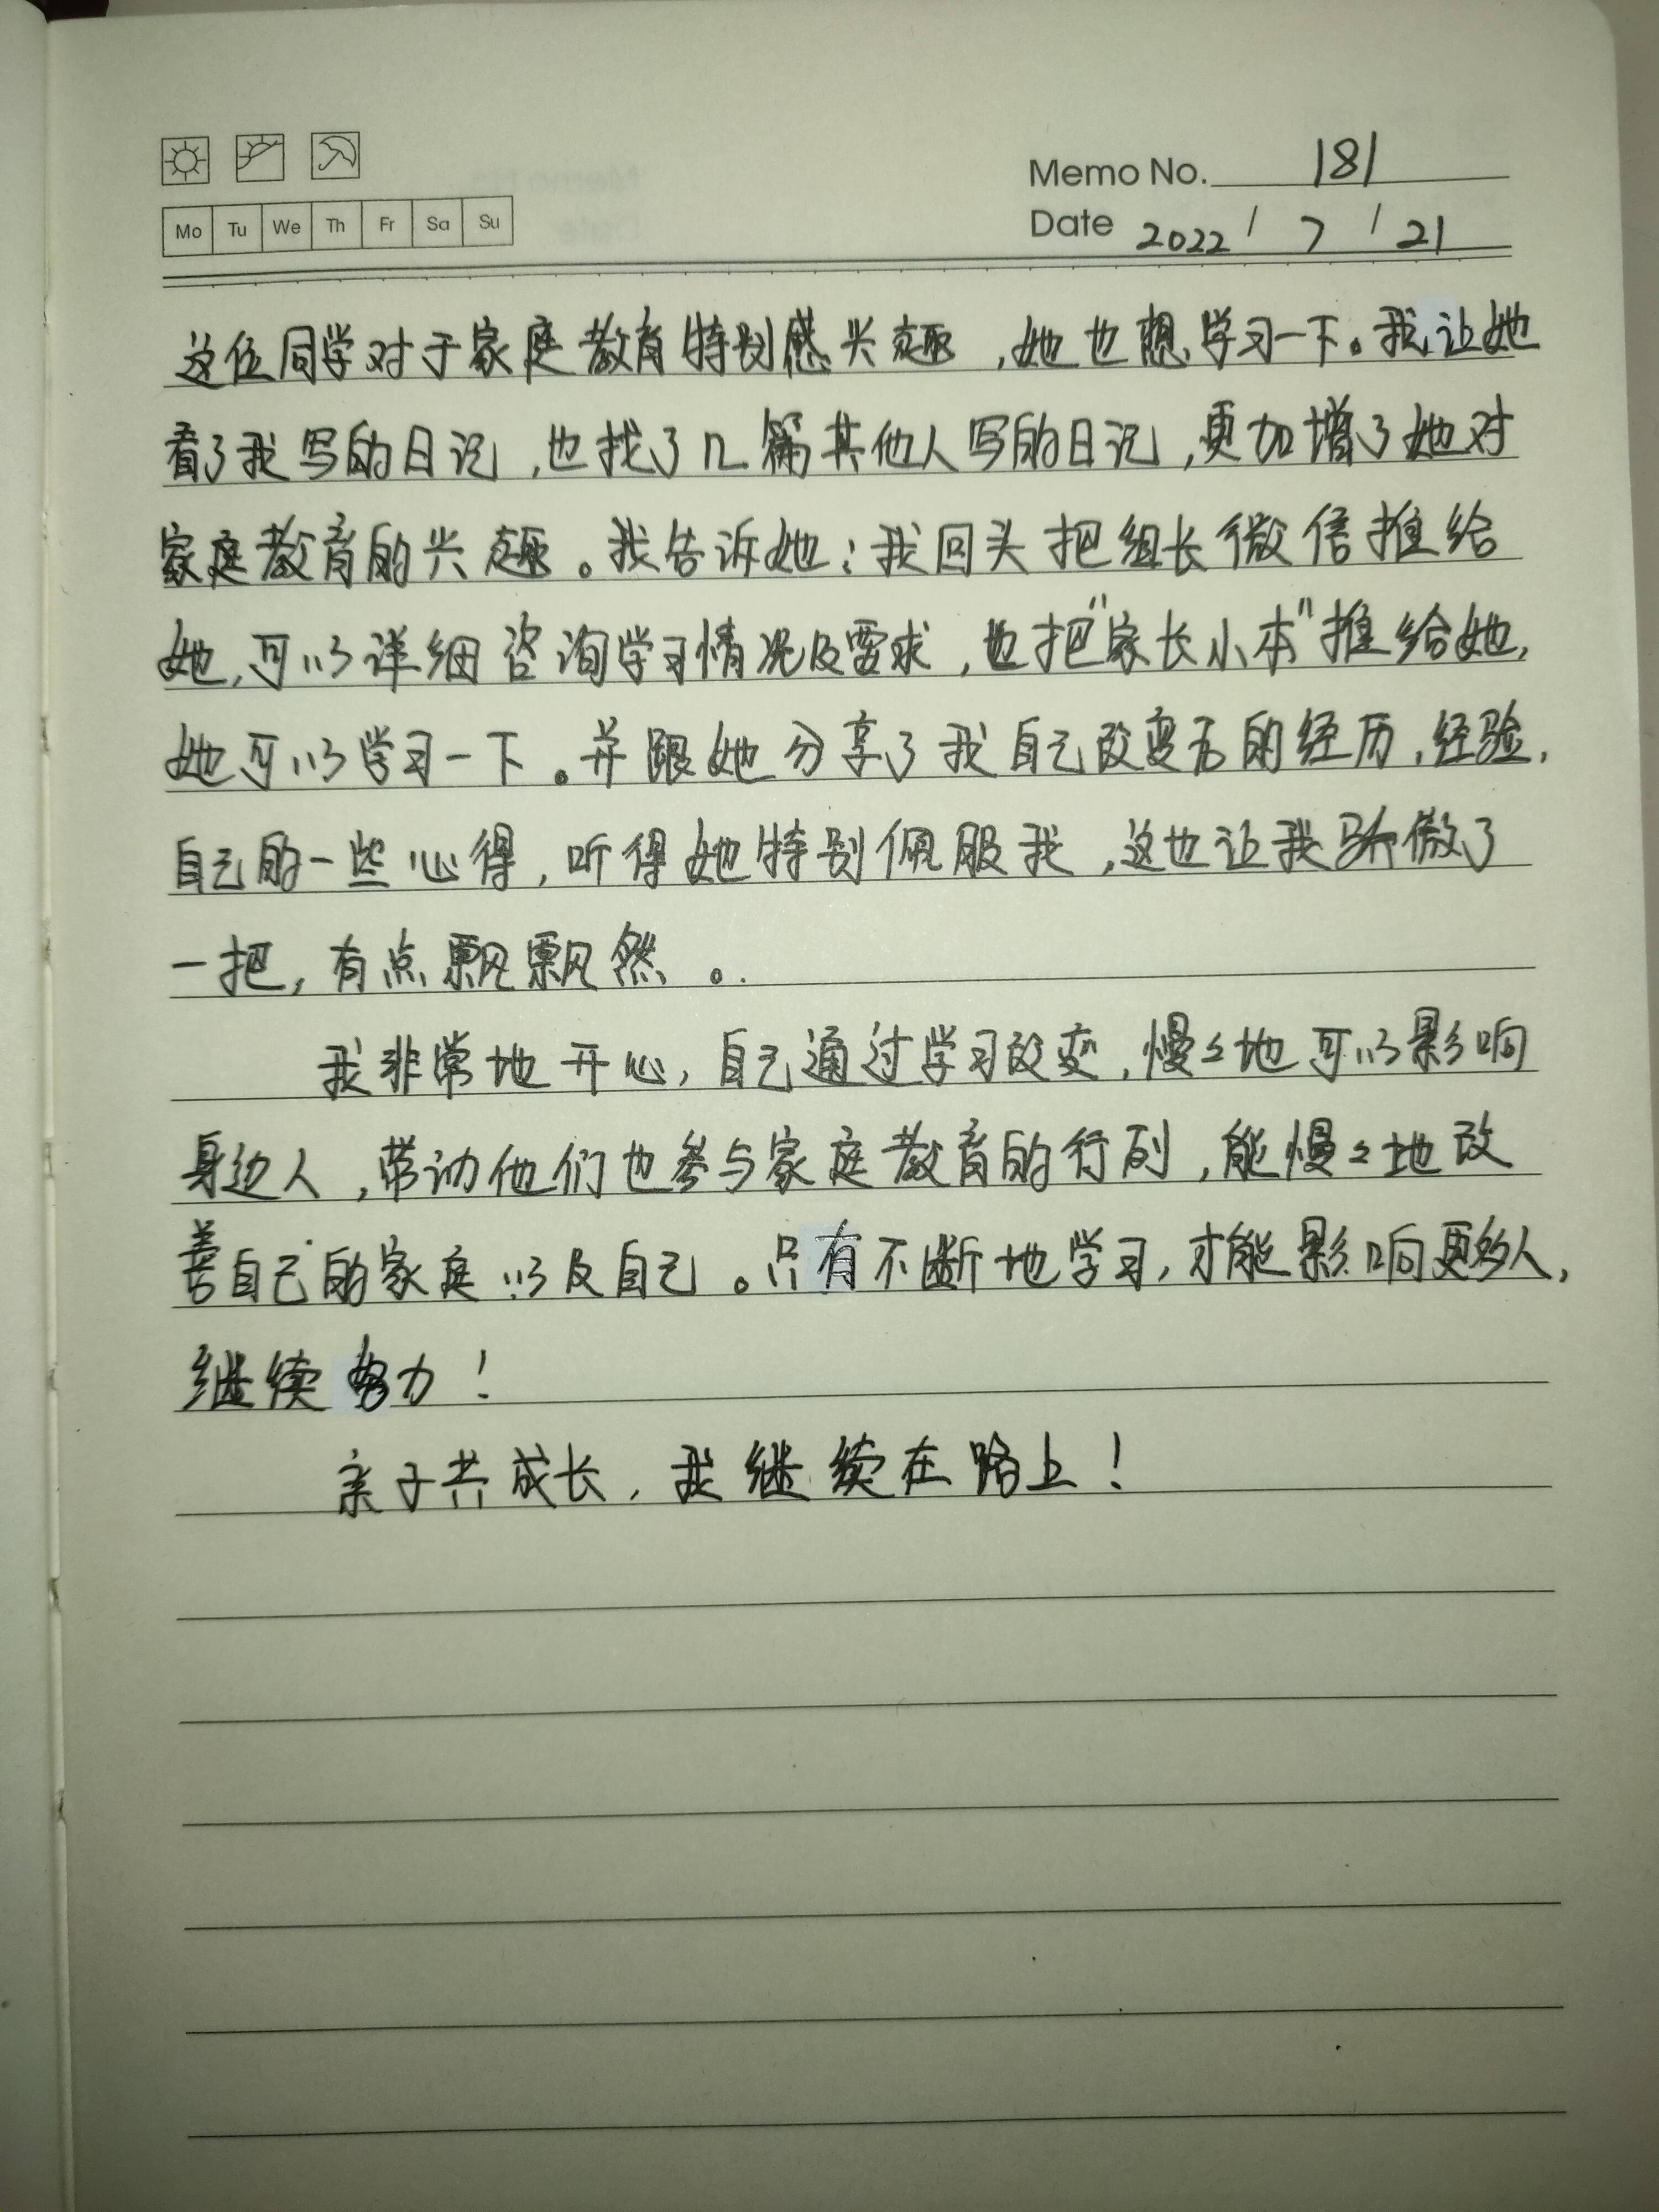 Memo No. 181
Mo Tu We Th Fr Sa Su
Date 2022 / 7 / 21
这位同学对于家庭教育特别感兴趣,她也想学习一下。我让她
看了我写的日记,也找了几篇其他人写的日记,更加增了她对
家庭教育的兴趣。我告诉她:我回头把组长微信推给
她,可以详细咨询学习情况及要求,也把"家长小本"推给她,
她可以学习一下。并跟她分享了我自己改变后的经历,经验,
自己的一些心得,听得她特别佩服我,这也让我骄傲了
一把,有点飘飘然。
我非常地开心,自己通过学习改变,慢々地可以影响
身边人,带动他们也参与家庭教育的行列,能慢々地改
善自己的家庭以及自己。只有不断地学习,才能影响更多人,
继续努力!
亲子共成长,我继续在路上!